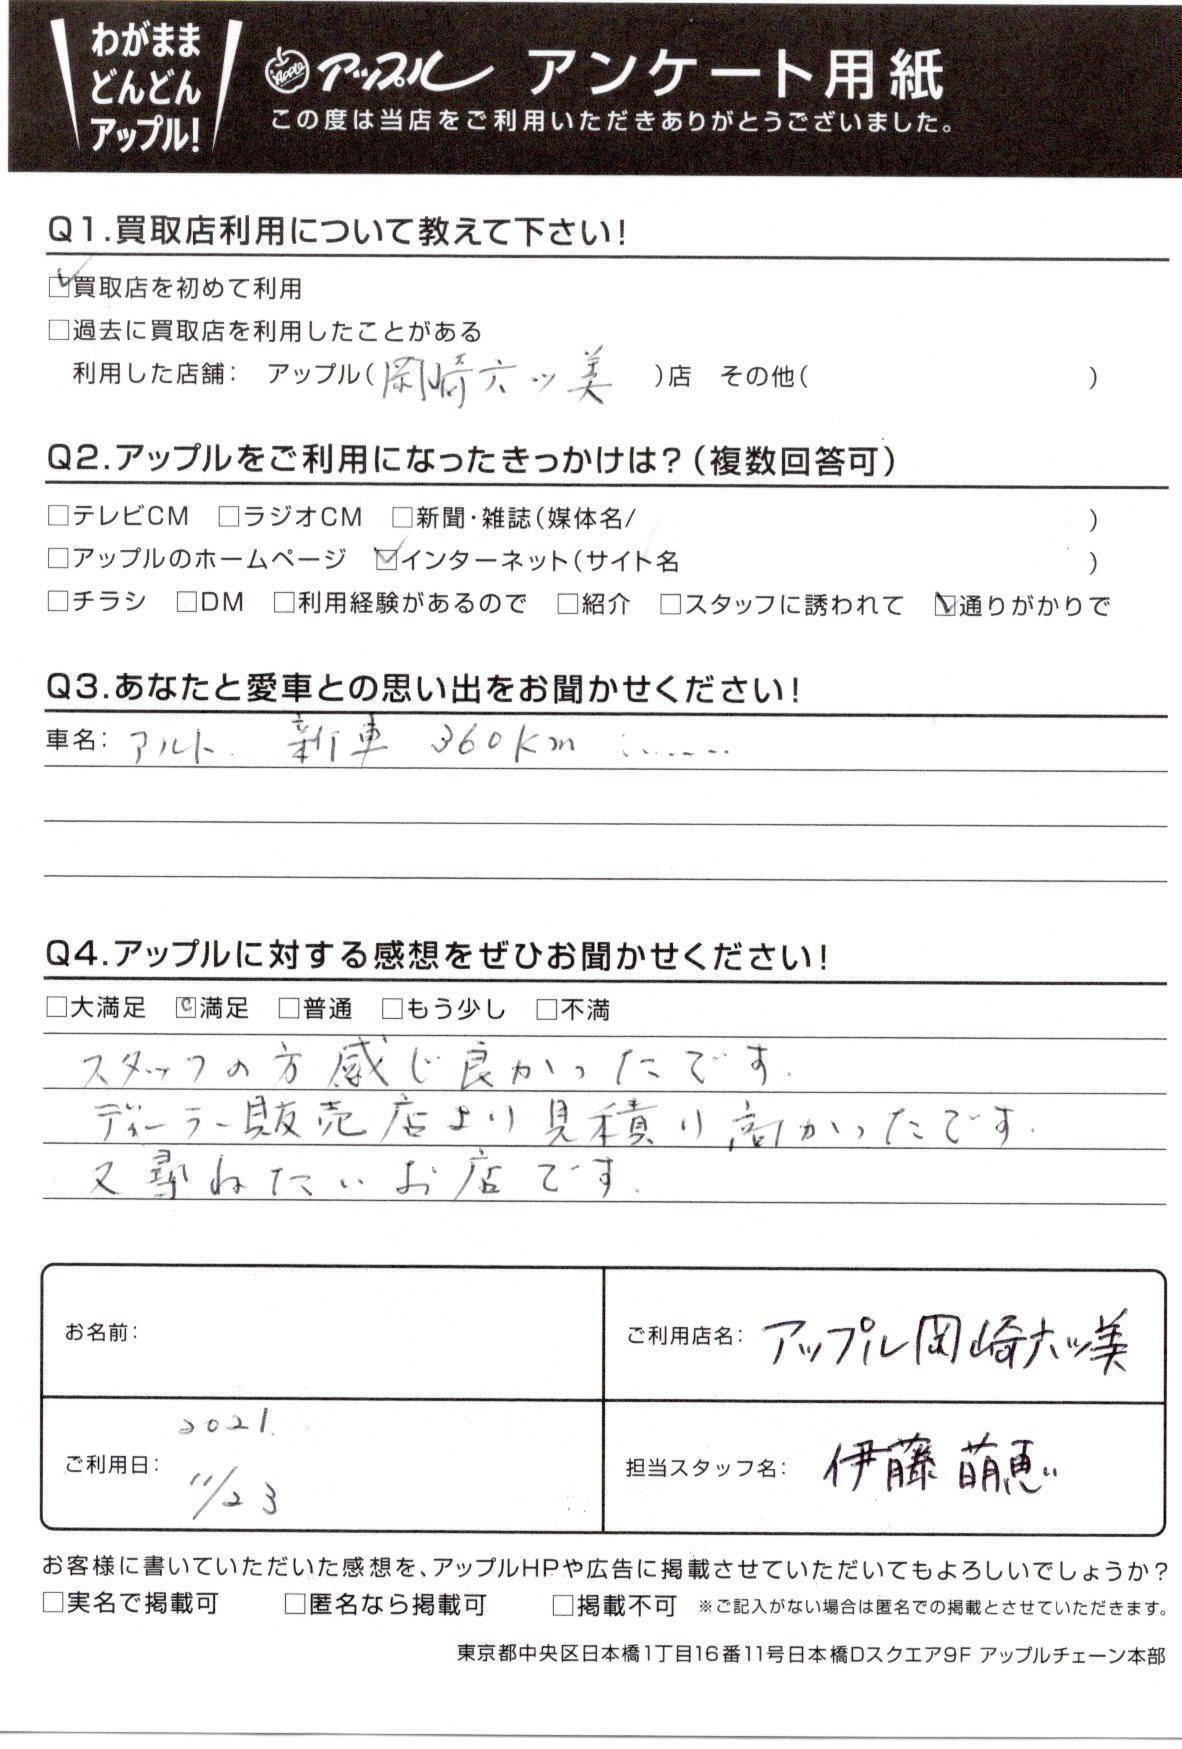 わがまま
どんどん
アップル!
Apple アップル アンケート用紙
この度は当店をご利用いただきありがとうございました。
Q1.買取店利用について教えて下さい!
☑買取店を初めて利用
□過去に買取店を利用したことがある
利用した店舗: アップル(岡崎六ッ美)店 その他( )
Q2.アップルをご利用になったきっかけは?(複数回答可)
□テレビCM □ラジオCM □新聞・雑誌(媒体名/ )
□アップルのホームページ ☑インターネット(サイト名 )
□チラシ □DM □利用経験があるので □紹介 □スタッフに誘われて ☑通りがかりで
Q3.あなたと愛車との思い出をお聞かせください!
車名: アルト. 新車 360km .......
Q4.アップルに対する感想をぜひお聞かせください!
□大満足 ☑満足 □普通 □もう少し □不満
スタッフの方感じ良かったです.
ディーラー販売店より見積り高かったです.
又尋ねたいお店です.
お名前:
ご利用店名: アップル岡崎六ッ美
ご利用日: 2021. 11/23
担当スタッフ名: 伊藤 萌恵
お客様に書いていただいた感想を、アップルHPや広告に掲載させていただいてもよろしいでしょうか?
□実名で掲載可 □匿名なら掲載可 □掲載不可 ※ご記入がない場合は匿名での掲載とさせていただきます。
東京都中央区日本橋1丁目16番11号日本橋Dスクエア9F アップルチェーン本部